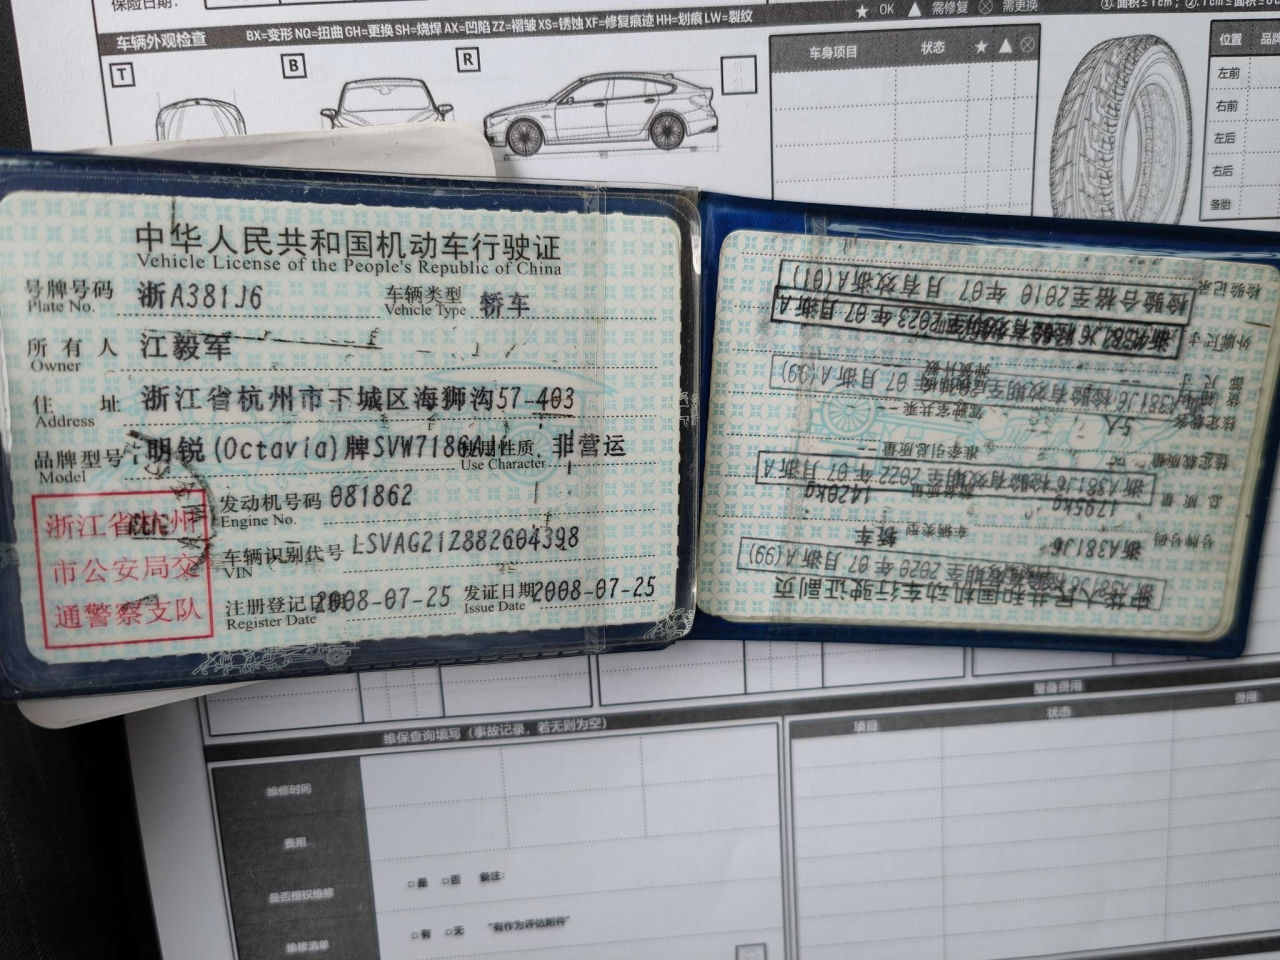 保险日期:
★ OK ▲ 需修复 ⊗ 需更换
车辆外观检查 BX=变形 NQ=扭曲 GH=更换 SH=烧焊 AX=凹陷 ZZ=褶皱 XS=锈蚀 XF=修复痕迹 HH=划痕 LW=裂纹
T
B
R
车身项目 状态 ★ ▲ ⊗
位置
左前
右前
左后
右后
备胎
中华人民共和国机动车行驶证
Vehicle License of the People's Republic of China
号牌号码 浙A381J6 车辆类型 轿车
Plate No. Vehicle Type
所有人 江毅军
Owner
住址 浙江省杭州市下城区海狮沟57-403
Address
品牌型号 明锐(Octavia)牌SVW7186 使用性质 非营运
Model Use Character
浙江省杭州
市公安局交
通警察支队
发动机号码 081862
Engine No.
车辆识别代号 LSVAG21Z882604398
VIN
注册登记日期 2008-07-25 发证日期 2008-07-25
Register Date Issue Date
中华人民共和国机动车行驶证副页
浙A381J6检验有效期至2020年07月浙A(99)
号牌号码 浙A381J6 车辆类型 轿车
总质量 1795kg 1420kg
浙A381J6检验有效期至2022年07月浙A
核定载质量 -- 准牵引总质量 --
5人 驾驶室共乘 --
A381J6检验有效期至 07月浙A(99)
外廓尺寸
2023年07月浙A
检验记录
检验合格至2010年07月有效浙A(01)
维保查询填写(事故记录,若无则为空)
维修时间
费用
是否授权维修 □是 □否 备注:
维修清单 □有 □无 "有作为评估附件"
整备费用
项目 状态 费用